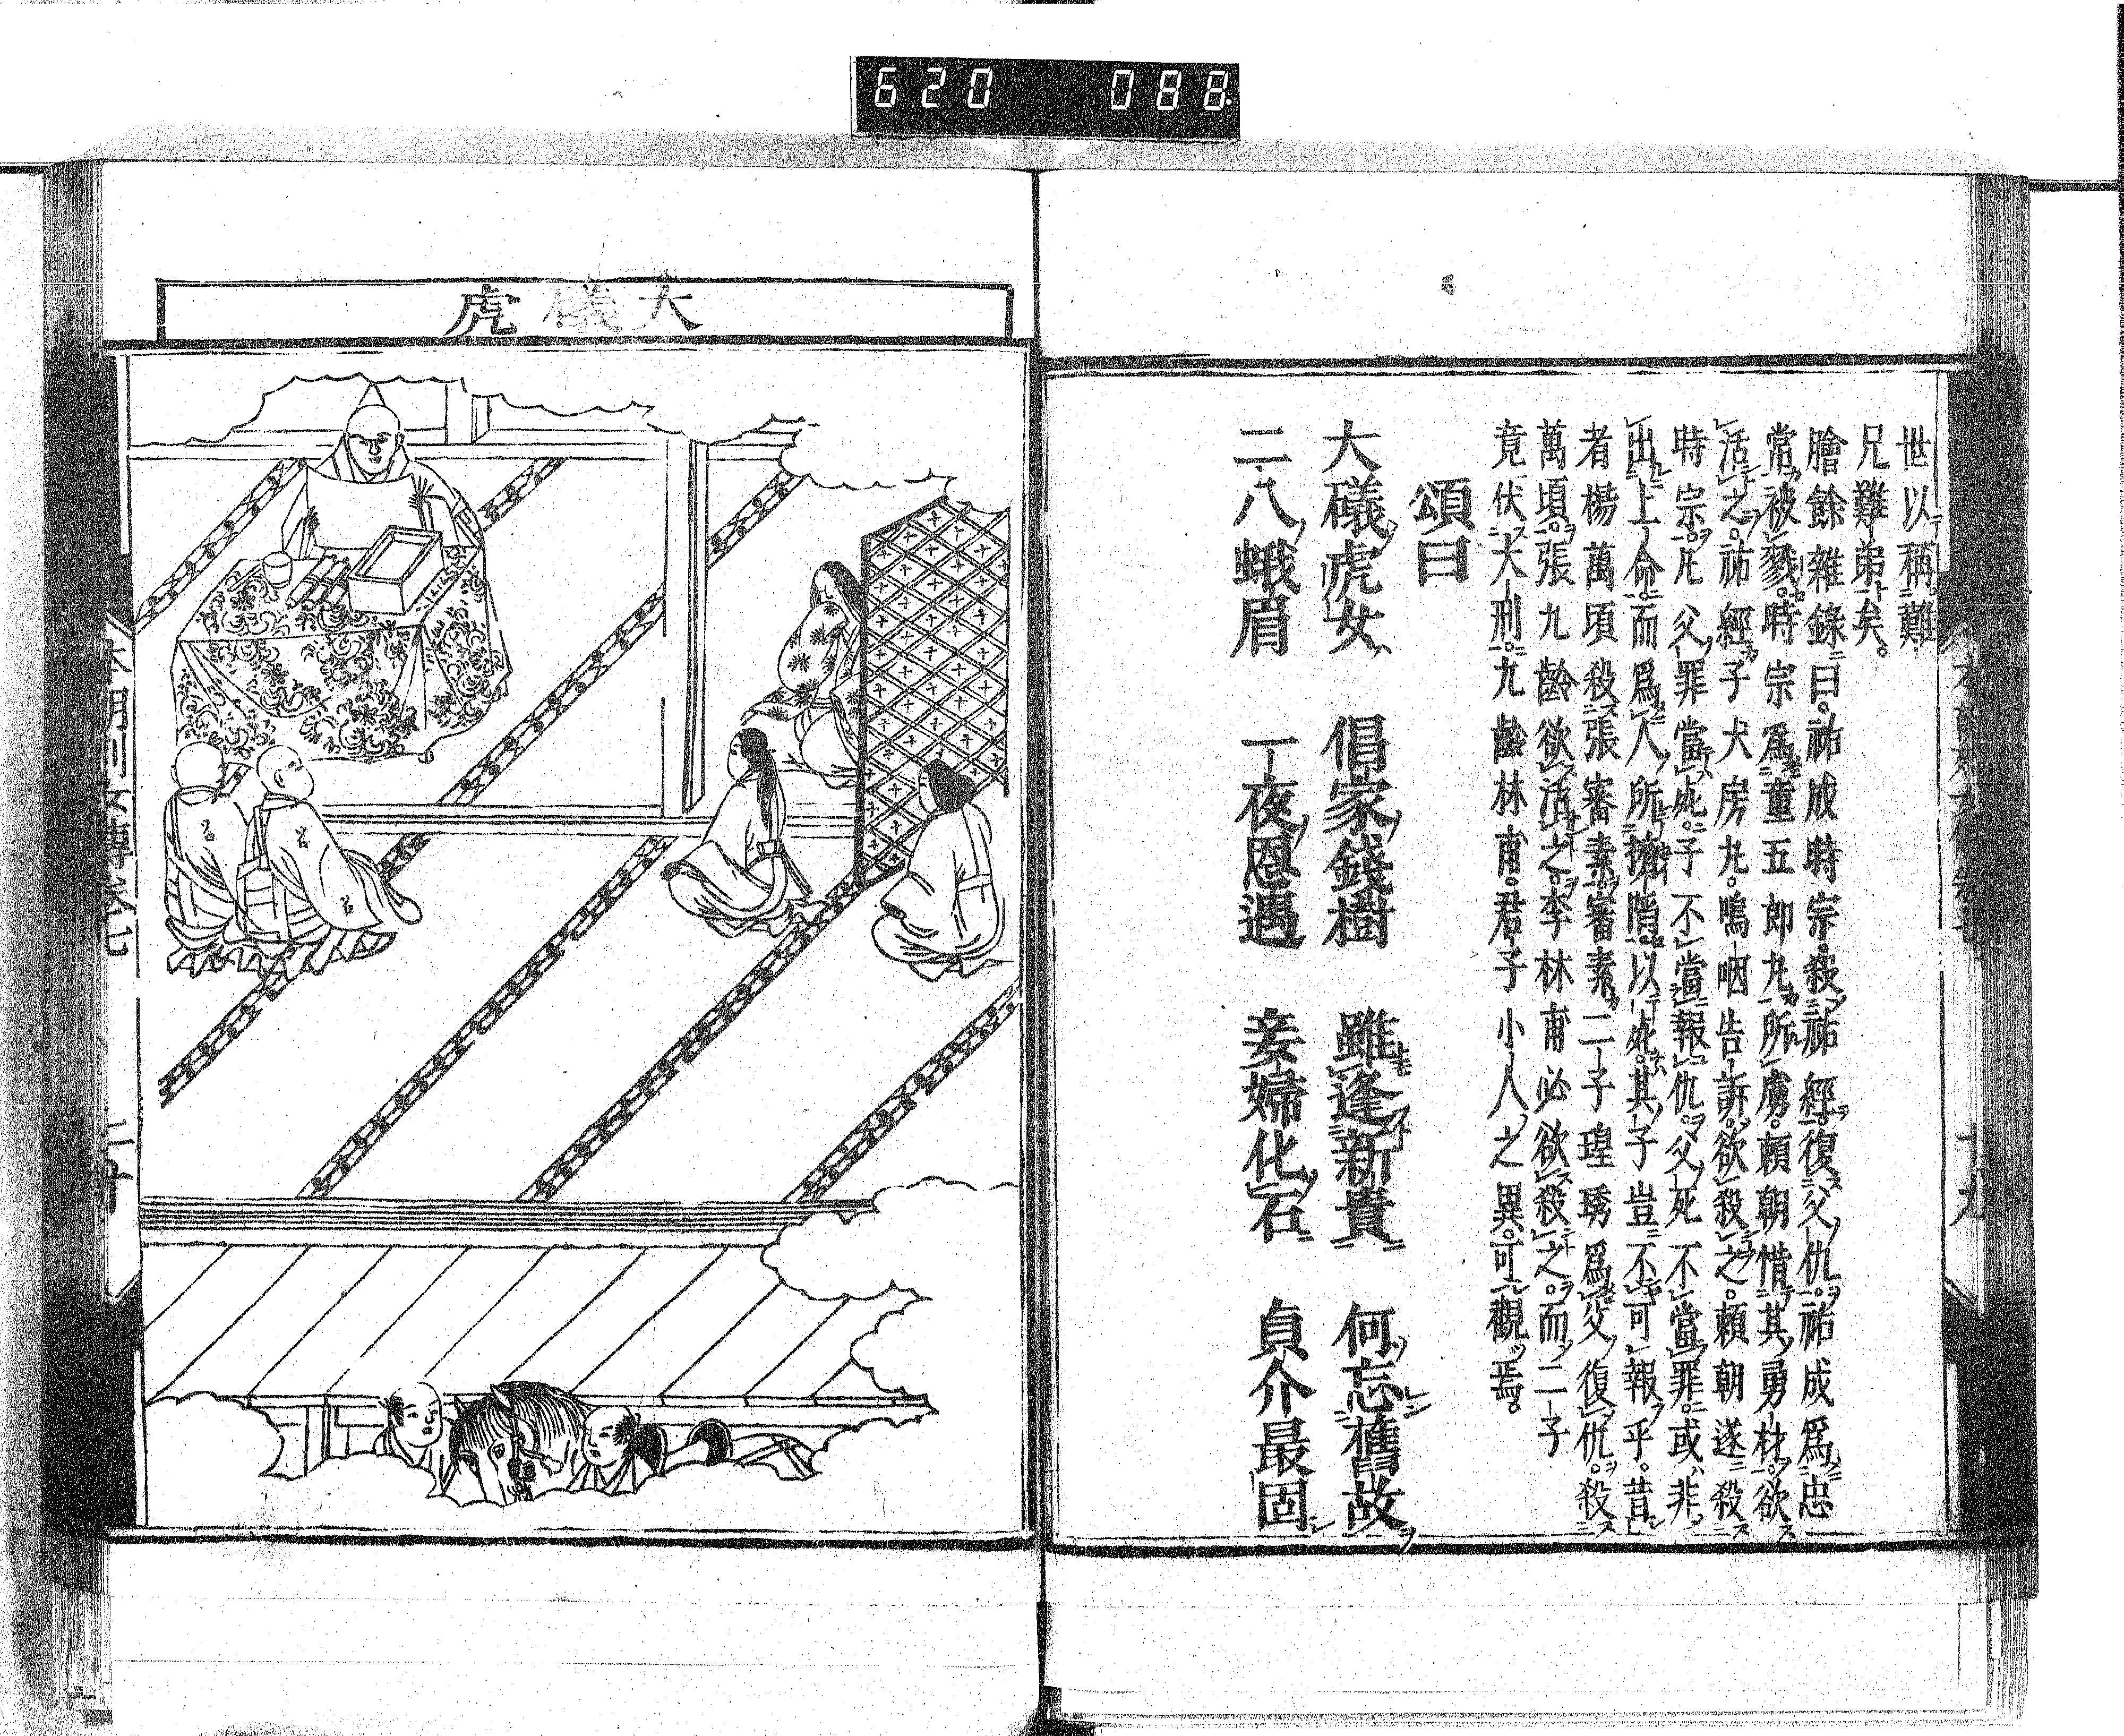 620 088
世以稱難
兄難弟矣。
膾餘雜錄曰。祐成時宗。殺祐經。復父仇。祐成爲忠
常被戮。時宗爲童五郎丸所虜。頼朝惜其勇材。欲
活之。祐經子犬房丸。鳴咽告訴。欲殺之。頼朝遂殺
時宗。凡父罪當死。子不當報仇。父死不當罪。或非
出上命。而爲人所擠陷以死。其子豈不可報乎。昔
者楊萬頃殺張審素。審素二子瑝琇爲父復仇。殺
萬頃。張九齡欲活之。李林甫必欲殺之。而二子
竟伏大刑。九齡林甫。君子小人之異。可觀焉。
頌曰
大礒虎女 倡家錢樹 雖逢新貴 何忘舊故
二八蛾眉 一夜恩遇 妾婦化石 貞介最固
大礒虎